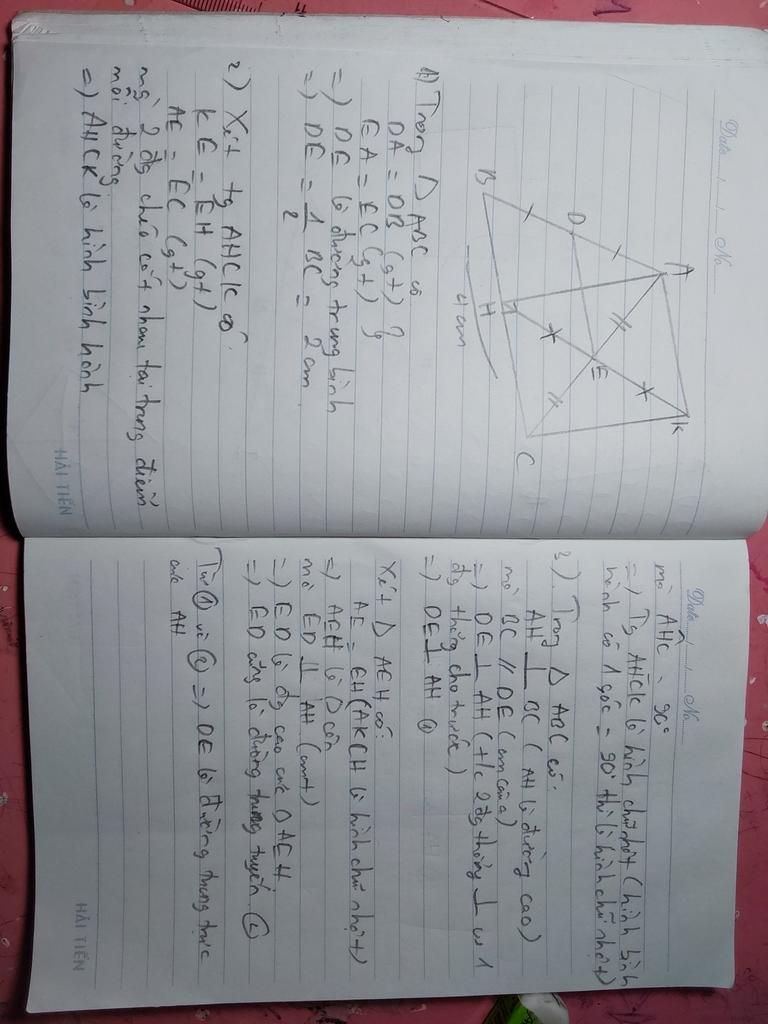 Date / / No
A
K
D
E
B
H
C
4 cm
1) Trong Δ ABC có
DA = DB (gt) }
EA = EC (gt) }
=) DE là đường trung bình
=) DE = 1/2 BC = 2 cm
2) Xét tg AHCK có:
KE = EH (gt)
AE = EC (gt)
mà 2 đg chéo cắt nhau tại trung điểm
mỗi đường
=) AHCK là hình bình hành
HẢI TIẾN
Date / / No
mà AHC = 90°
=) Tg AHCK là hình chữ nhật (hình bình
hành có 1 góc = 90° thì là hình chữ nhật)
3). Trong Δ ABC có:
AH ⊥ BC (AH là đường cao)
mà BC // DE (cm câu a)
=) DE ⊥ AH (t/c 2 đg thẳng ⊥ vs 1
đg thẳng cho trước)
=) DE ⊥ AH ①
Xét Δ AEH có:
AE = EH (AKCH là hình chữ nhật)
=) AEH là Δ cân
mà ED ⊥ AH (cmt)
=) ED là đg cao của Δ AEH
=) ED cũng là đường trung tuyến ②
Từ ① và ② =) DE là đường trung trực
của AH
HẢI TIẾN